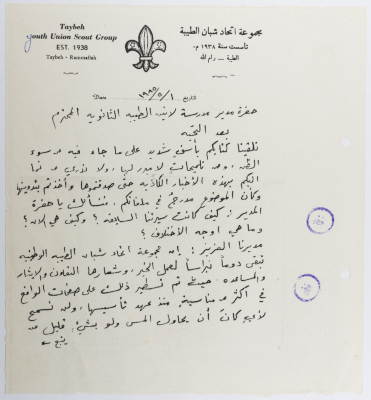 Taybeh
Youth Union Scout Group
EST. 1938
Taybeh - Ramallah
مجموعة اتحاد شبان الطيبة
تأسست سنة ١٩٣٨ م.
الطيبة - رام الله
Date
التاريخ ١ / ٥ / ١٩٨٥
حضرة مدير مدرسة لاتين الطيبه الثانويه المحترم
بعد التحيه
تلقينا كتابكم بأسف شديد على ما جاء فيه من سوء
الظن، ومن تلميحات لا مبرر لها، ولا ندري من نما
اليكم بهذه الأخبار الكاذبه حتى صدقتموها وأخذتم بتدوينها
وكأن الموضوع مدرج في ملفاتكم، فنسألك يا حضرة
المدير: كيف كانت سيرتنا السابقة؟ وكيف هي الآن؟
وما هي أوجه الأختلاف؟
مديرنا العزيز: إن مجموعة اتحاد شبان الطيبه الوطنيه
تبقى دوماً نبراساً لعمل الخير، وشعارها التعاون والايثار
والمساعده. حيث تم تسطير ذلك على صفحات الواقع
في اكثر من مناسبة، منذ عهد تأسيسها، ولن نسمح
لأي كان أن يحاول المس ولو بشيء قليل من
يتبع